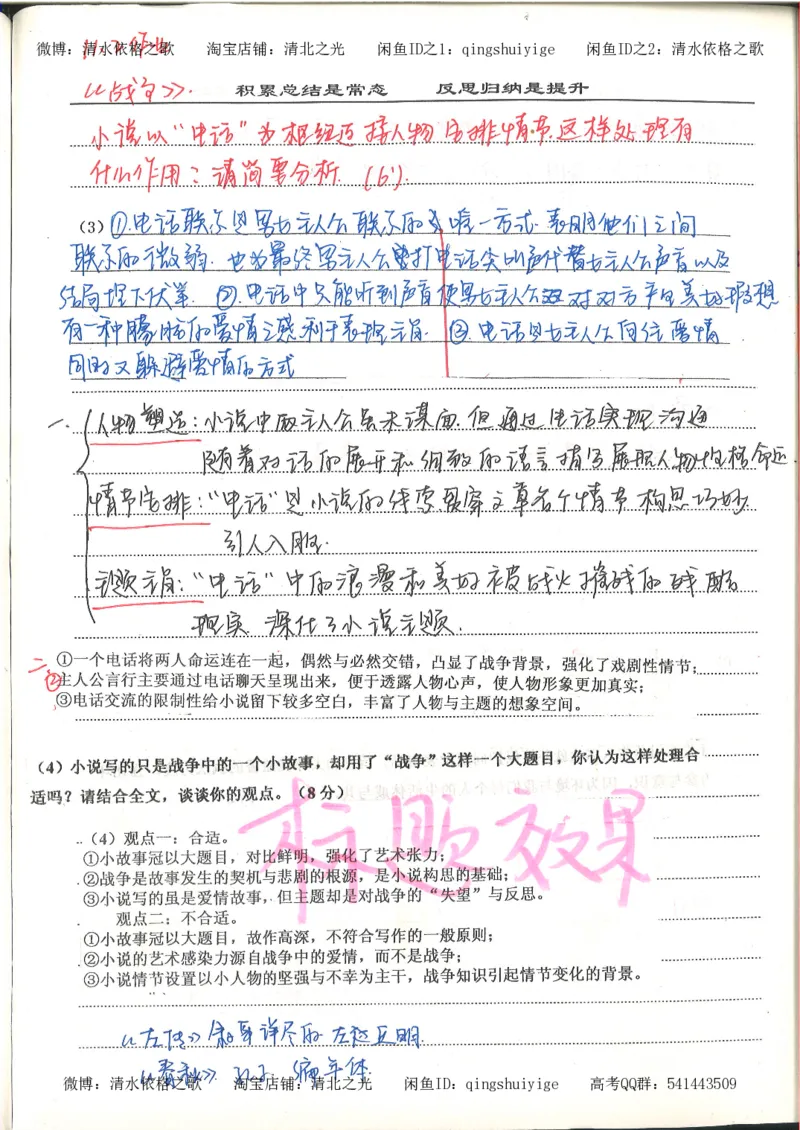 微博：清水依格之歌 淘宝店铺：清北之光 闲鱼ID之1：qingshuiyige 闲鱼ID之2：清水依格之歌
11.2 作业
《战争》.
积累总结是常态 反思归纳是提升
小说以“电话”为枢纽连接人物安排情节,这样处理有
什么作用？请简要分析. (6').
(3) ①.电话联系是男女主人公联系的唯一方式.表明他们之间
联系的微弱.也为最终男主人公打电话实叫声代替女主人公声音以及
结局埋下伏笔. ②.电话中只能听到声音使男女主人公对对方产生美好遐想
有一种朦胧的爱情之感.利于表现主旨. ③.电话是女主人公向往爱情
同时又躲避爱情的方式
一、人物塑造：小说中两主人公虽未谋面.但通过电话实现沟通
随着对话的展开和细致的语言描写展现人物性格命运.
情节安排：“电话”是小说的线索贯穿文章各个情节 构思巧妙.
引人入胜.
主题主旨：“电话”中的浪漫和美好被战火摧残的残酷
现实.深化了小说主题.
二、①一个电话将两人命运连在一起，偶然与必然交错，凸显了战争背景，强化了戏剧性情节；
②主人公言行主要通过电话聊天呈现出来，便于透露人物心声，使人物形象更加真实；
③电话交流的限制性给小说留下较多空白，丰富了人物与主题的想象空间。
（4）小说写的只是战争中的一个小故事，却用了“战争”这样一个大题目，你认为这样处理合
适吗？请结合全文，谈谈你的观点。（8分）
标题效果
（4）观点一：合适。
①小故事冠以大题目，对比鲜明，强化了艺术张力；
②战争是故事发生的契机与悲剧的根源，是小说构思的基础；
③小说写的虽是爱情故事，但主题却是对战争的“失望”与反思。
观点二：不合适。
①小故事冠以大题目，故作高深，不符合写作的一般原则；
②小说的艺术感染力源自战争中的爱情，而不是战争；
③小说情节设置以小人物的坚强与不幸为主干，战争知识引起情节变化的背景。
《左传》叙事详尽的 左丘明.
《春秋》. 孔子 编年体.
微博：清水依格之歌 淘宝店铺：清北之光 闲鱼ID：qingshuiyige 高考QQ群：541443509